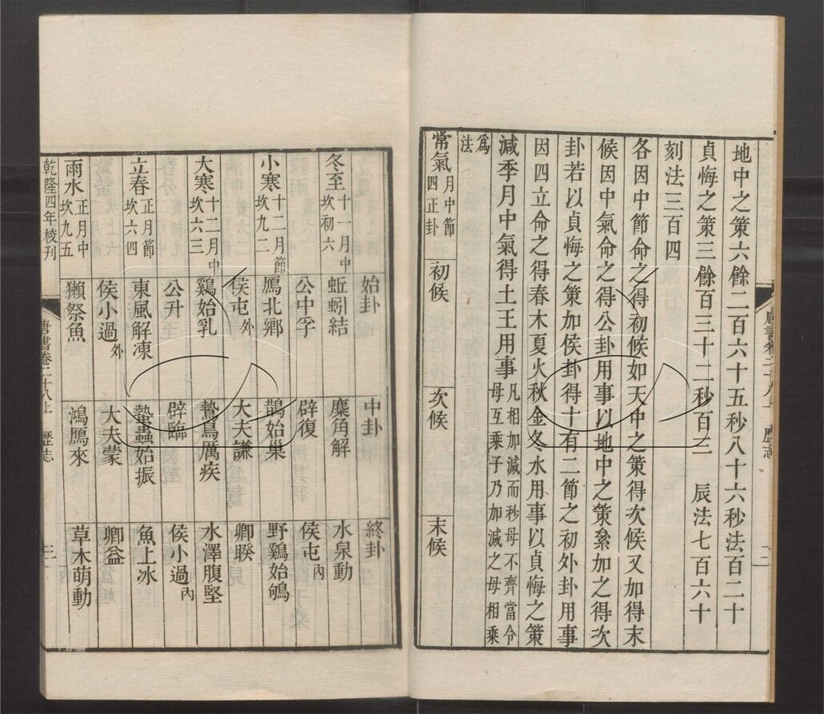 地中之策六餘二百六十五秒八十六秒法百二十
貞悔之策三餘百三十二秒百三　辰法七百六十
刻法三百四
各因中節命之得初候如天中之策得次候又加得末
候因中氣命之得公卦用事以地中之策絫加之得次
卦若以貞悔之策加侯卦得十有二節之初外卦用事
因四立命之得春木夏火秋金冬水用事以貞悔之策
減季月中氣得土王用事
凡相加減而秒母不齊當令
母互乘子乃加減之母相乘
爲
法
常氣 月中節 四正卦 初候 次候 末候
始卦 中卦 終卦
冬至 十一月中 坎初六 蚯蚓結 麋角解 水泉動
公中孚 辟復 侯屯內
小寒 十二月節 坎九二 鴈北鄉 鵲始巢 野鷄始鴝
侯屯外 大夫謙 卿睽
大寒 十二月中 坎六三 鷄始乳 鷙鳥厲疾 水澤腹堅
公升 辟臨 侯小過內
立春 正月節 坎六四 東風解凍 蟄蟲始振 魚上冰
侯小過外 大夫蒙 卿益
雨水 正月中 坎九五 獺祭魚 鴻鴈來 草木萌動
乾隆四年校刊 唐書卷二十八上 歷志 三